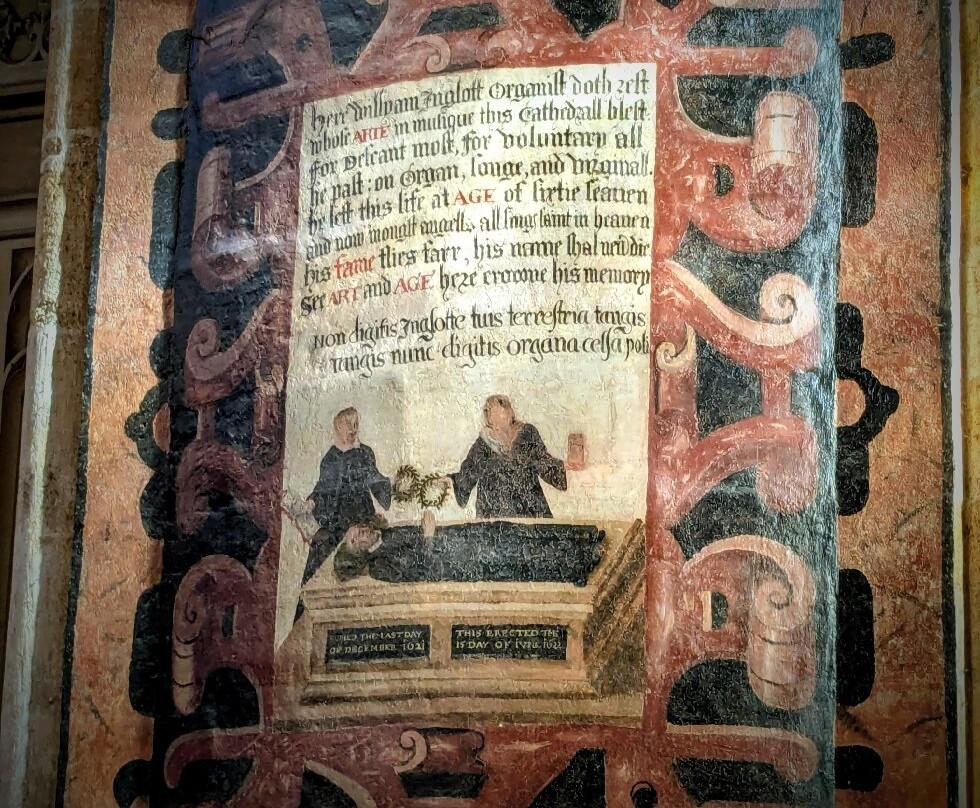 Here Willyam Inglott Organist doth rest
whose ARTE in musique this Cathedrall blest.
for Descant most, for voluntary all
he past: on Organ, songe, and Virginall.
he left this life at AGE of sixtie seaven
and now mongst angells all sings saint in heaven
his fame flies farr, his name shal never die
See ART and AGE here crowne his memory
non digitis Inglotte tuis terrestria tangis
Tangis nunc digitis organa celsa poli
BURIED THE LAST DAY
OF DECEMBER 1621
THIS ERECTED THE
15 DAY OF IVNE 1622